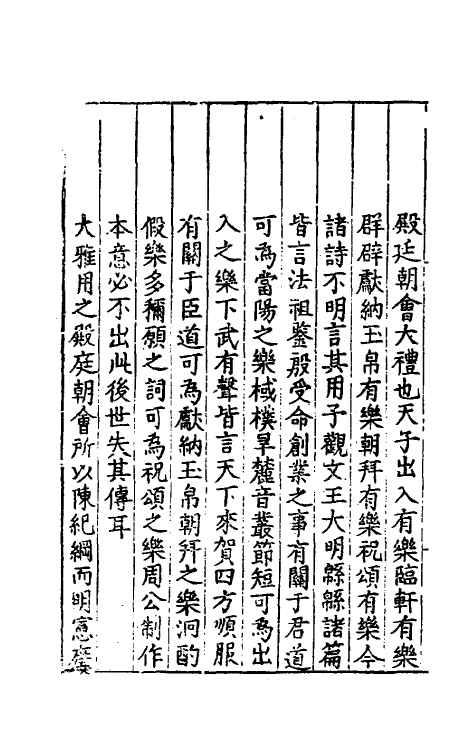 殿廷朝會大禮也天子出入有樂臨軒有樂
群辟獻納玉帛有樂朝拜有樂祝頌有樂今
諸詩不明言其用予觀文王大明緜緜諸篇
皆言法祖鑒殷受命創業之事有關于君道
可為當陽之樂棫樸旱麓音叢節短可為出
入之樂下武有聲皆言天下來賀四方順服
有關于臣道可為獻納玉帛朝拜之樂泂酌
假樂多禰願之詞可為祝頌之樂周公制作
本意必不出此後世失其傳耳
大雅用之殿庭朝會所以陳紀綱而明憲度